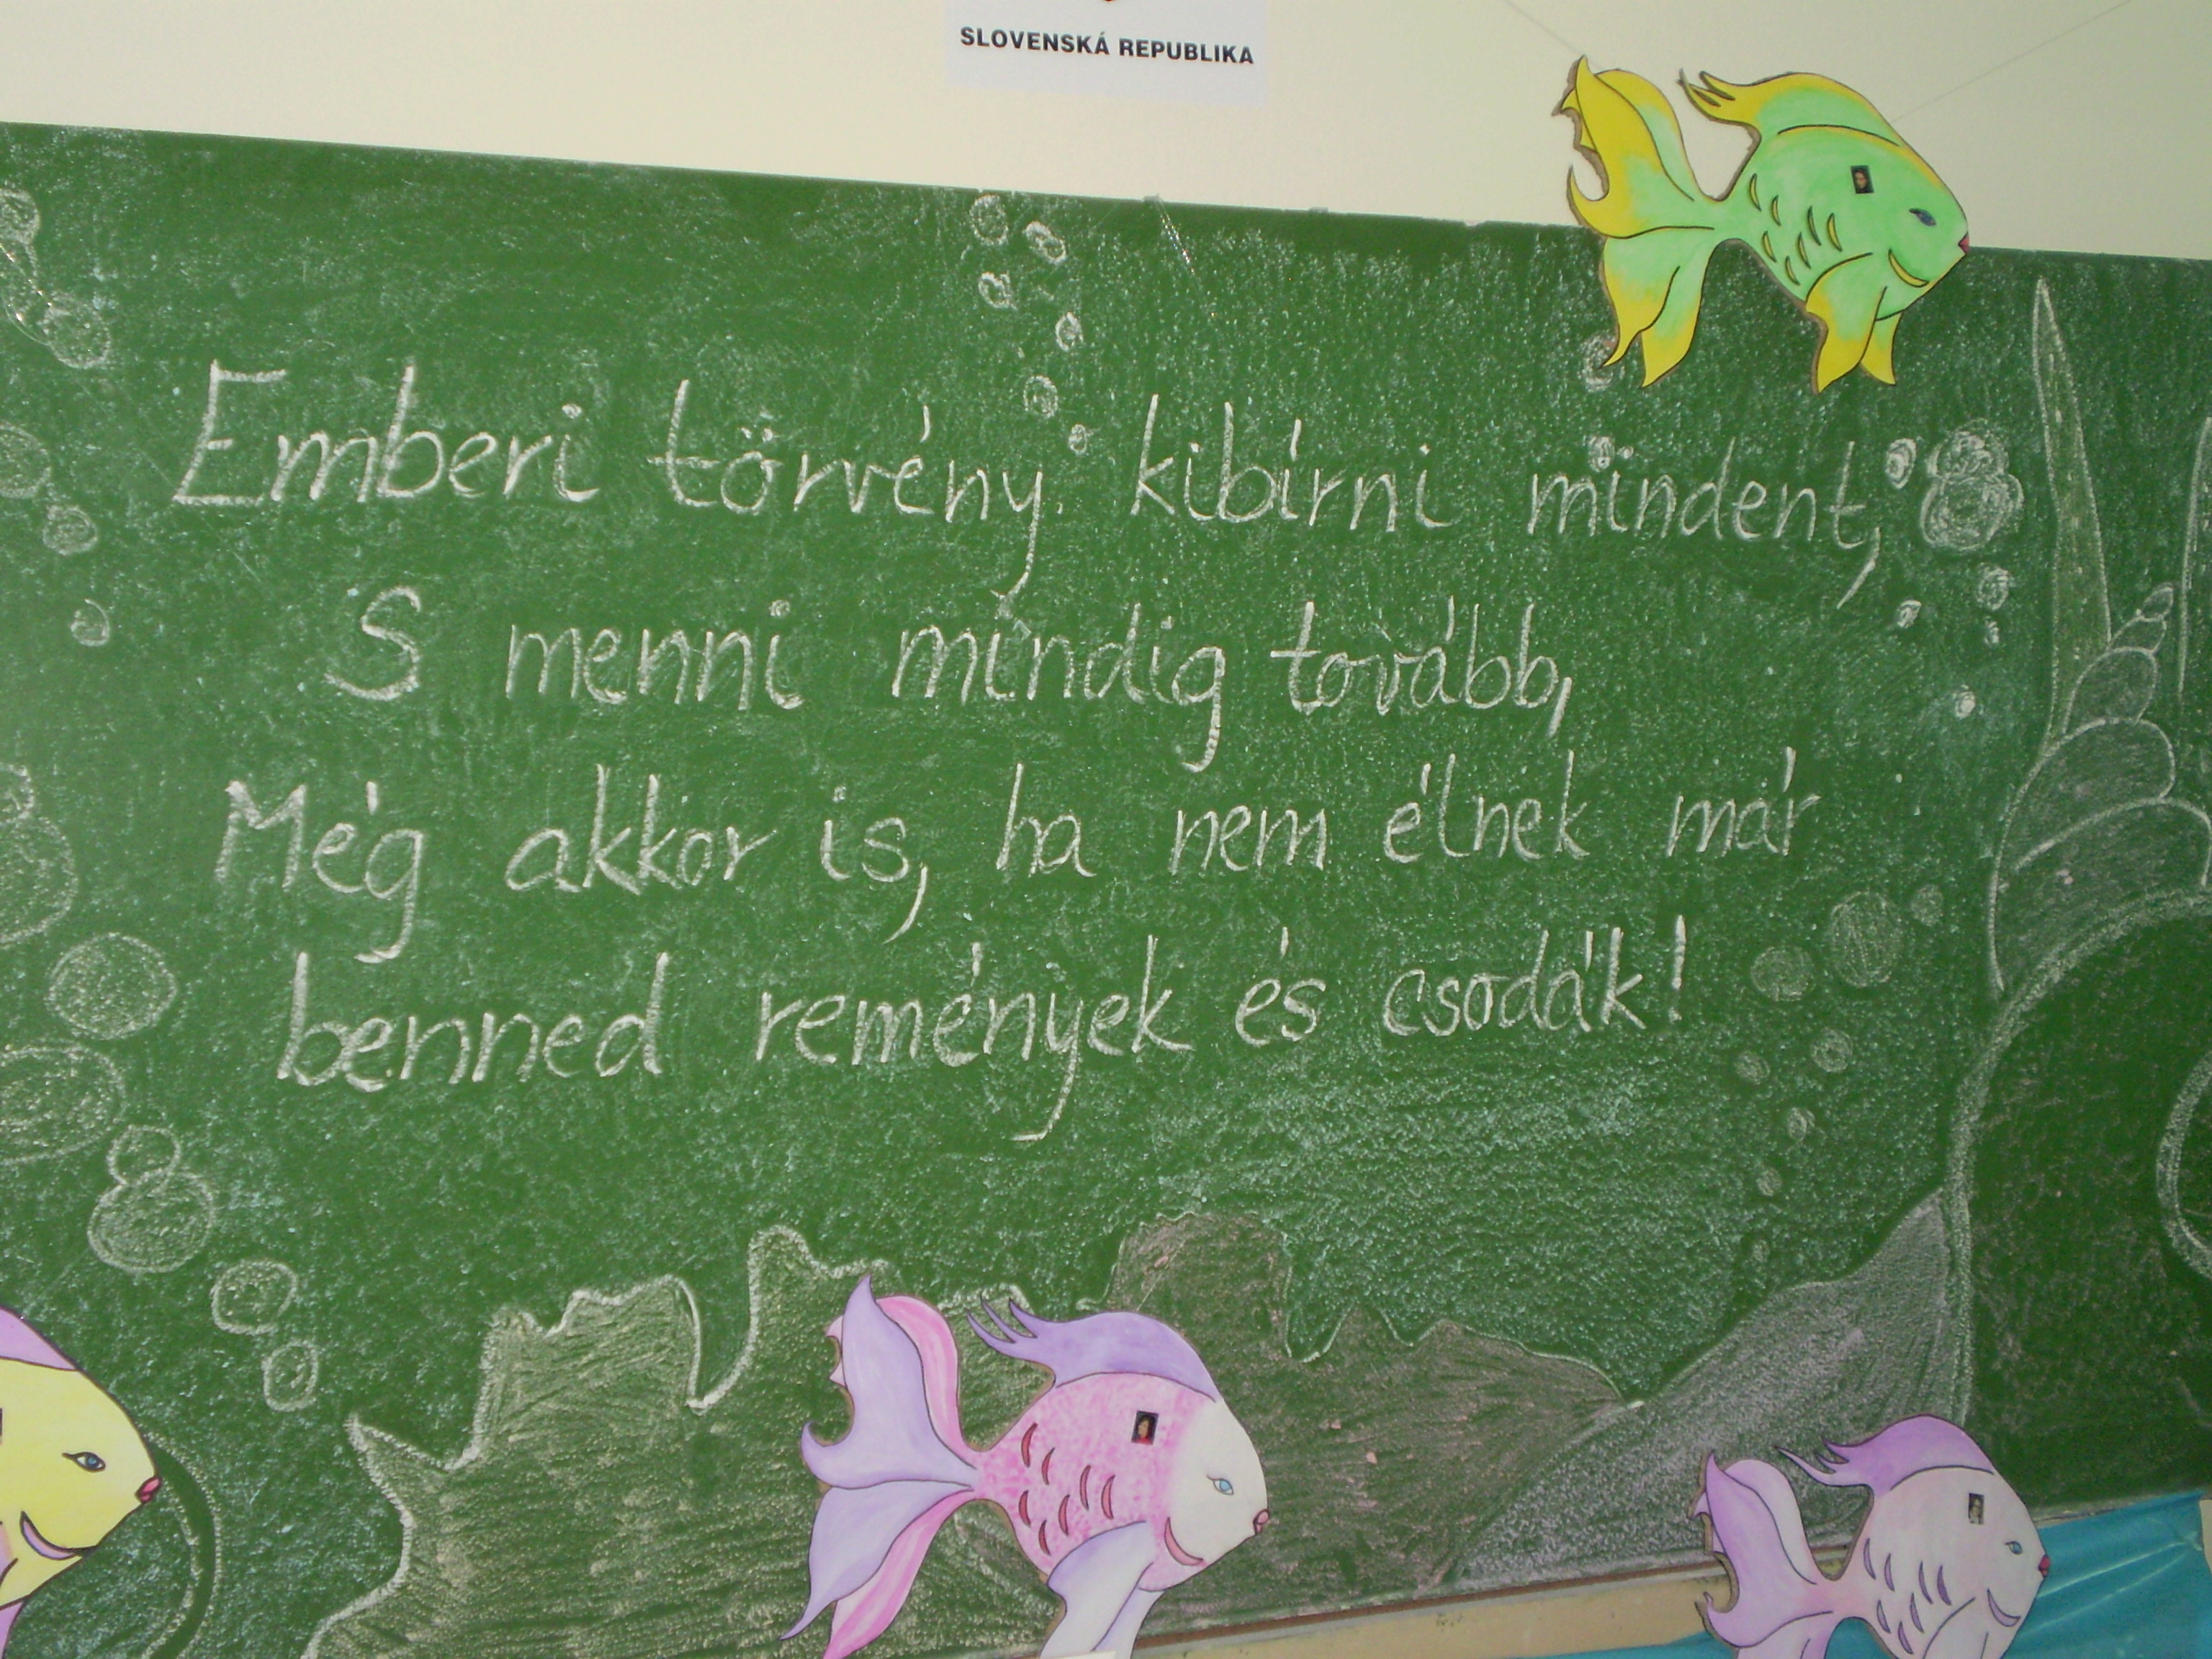 SLOVENSKÁ REPUBLIKA
Emberi törvény: kibírni mindent,
S menni mindig tovább,
Még akkor is, ha nem élnek már
benned remények és csodák!